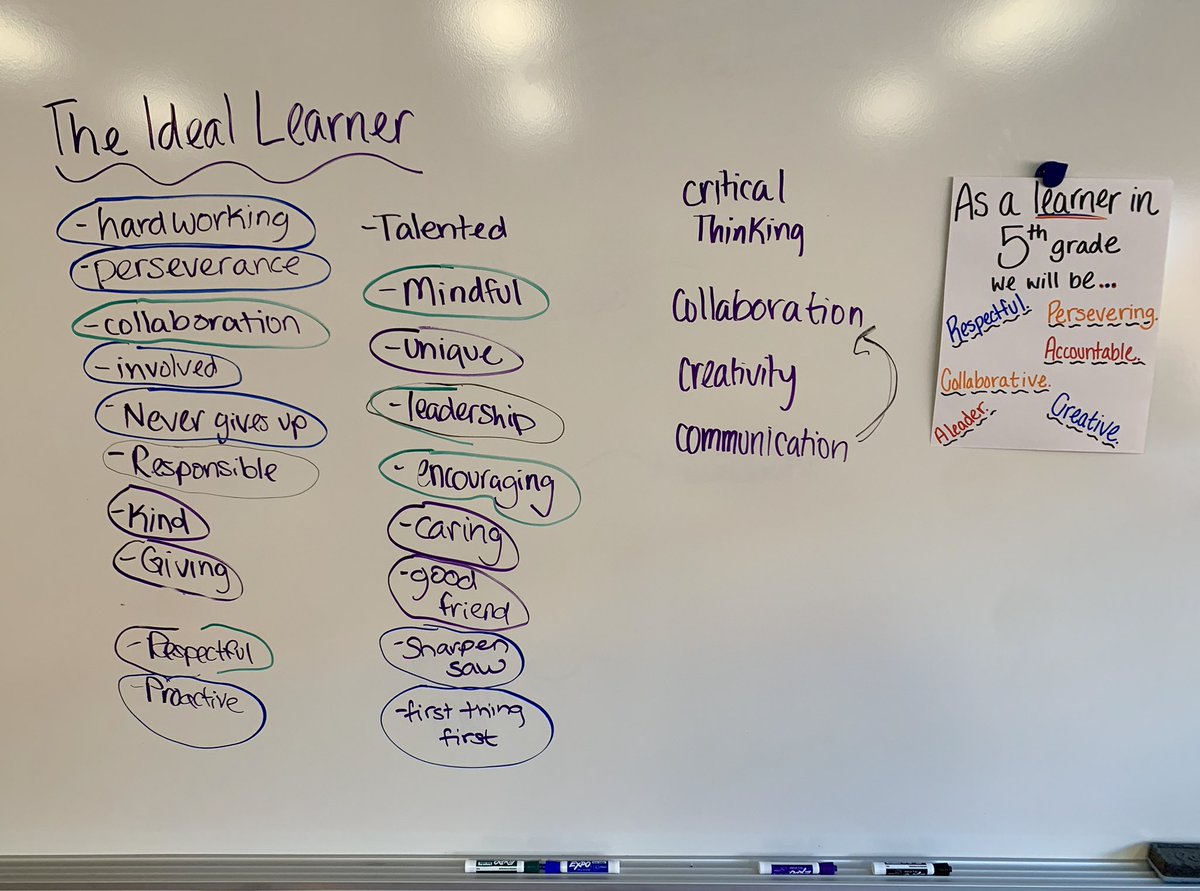 The Ideal Learner
-hardworking
-perseverance
-collaboration
-involved
-Never gives up
-Responsible
-Kind
-Giving
-Respectful
-Proactive
-Talented
-Mindful
-unique
-leadership
-encouraging
-caring
-good
friend
-sharpen
saw
-first thing
first
critical
Thinking
Collaboration
Creativity
Communication
As a learner in
5th grade
we will be...
Respectful.
Persevering.
Accountable.
Collaborative.
A leader.
Creative.
EXPO